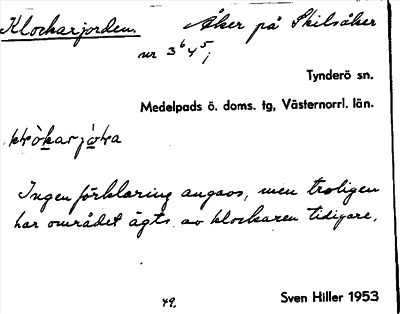 Klockarjorden. Åker på Skilsåker
nr 3⁶4⁵;
Tynderö sn.
Medelpads ö. doms. tg, Västernorrl. län.
Ingen förklaring angavs, men troligen
har området ägts av klockaren tidigare.
49. Sven Hiller 1953